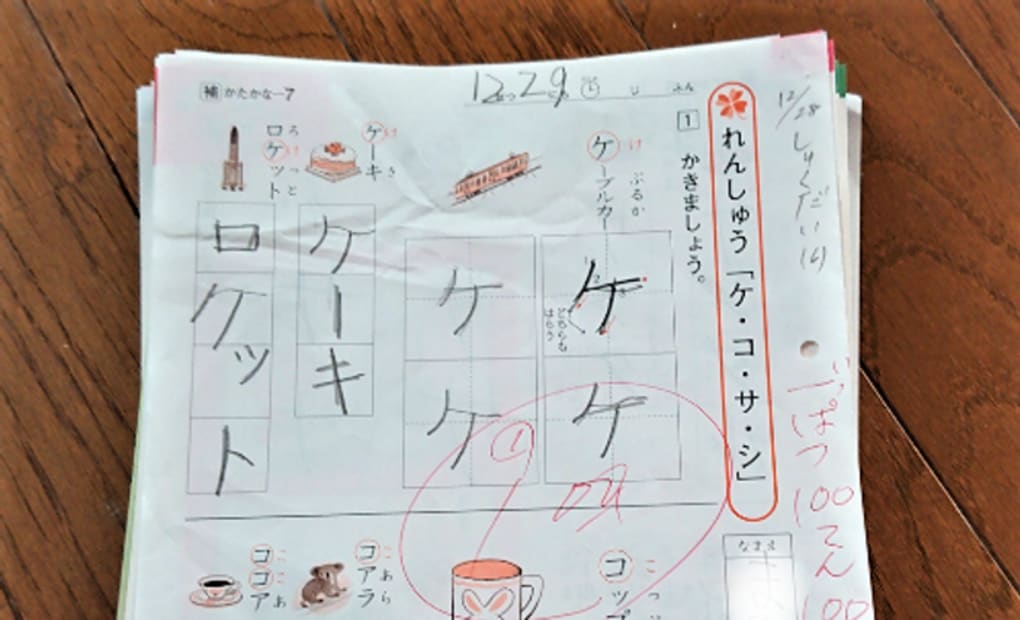 補 かたかな－7
12がつ29にち(1) じ ふん
12/28 しゅくだい(1)
れんしゅう「ケ・コ・サ・シ」
1 かきましょう。
け ぶるか
ケーブルカー
ケ
どちらも
はらう
ケ
ケ
ケ
け き
ケーキ
ケーキ
ろ け っ と
ロケット
ロケット
いっぱつ100てん
100
なまえ
こ っ
コップ
こ あ ら
コアラ
こ こ あ
ココア